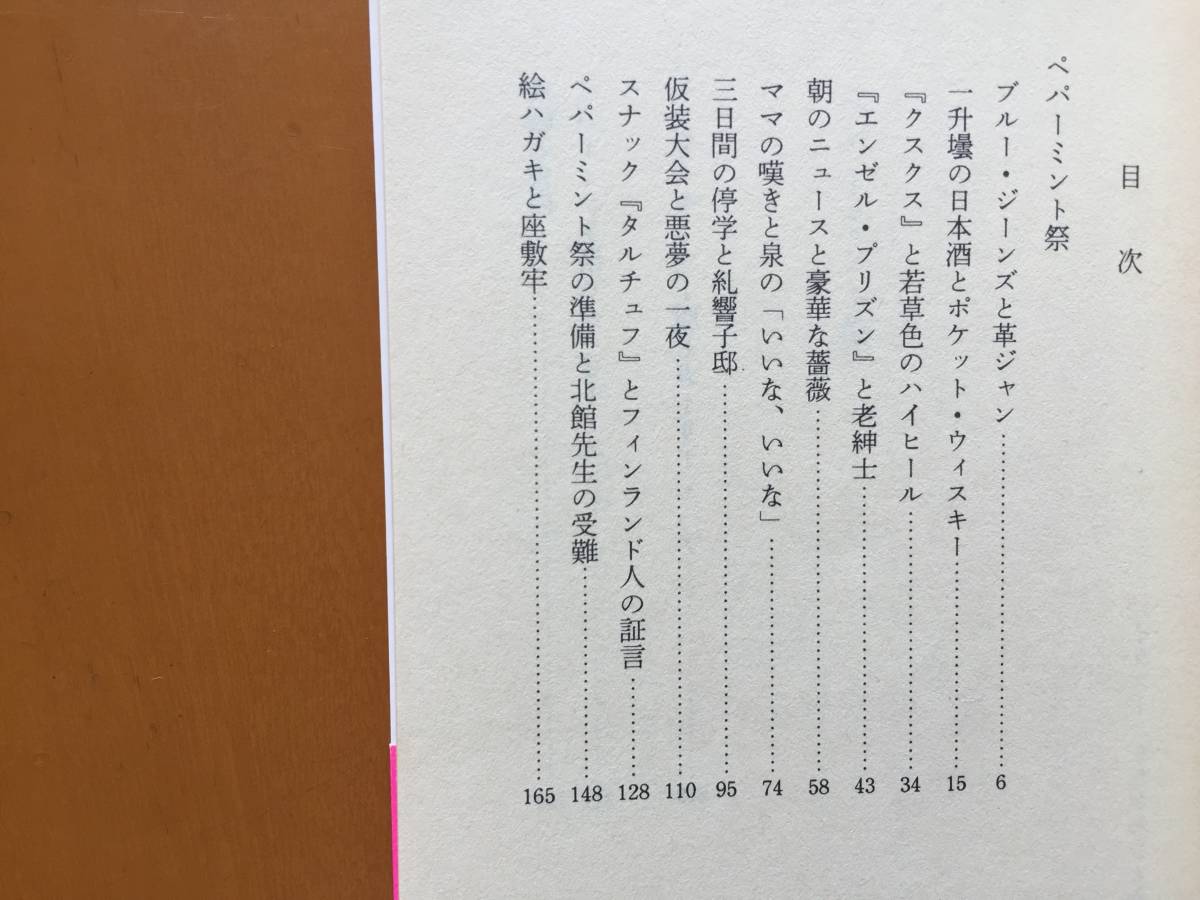 目次
ペパーミント祭
ブルー・ジーンズと革ジャン……6
一升壜の日本酒とポケット・ウィスキー……15
『クスクス』と若草色のハイヒール……34
『エンゼル・プリズン』と老紳士……43
朝のニュースと豪華な薔薇……58
ママの嘆きと泉の「いいな、いいな」……74
三日間の停学と糺響子邸……95
仮装大会と悪夢の一夜……110
スナック『タルチュフ』とフィンランド人の証言……128
ペパーミント祭の準備と北館先生の受難……148
絵ハガキと座敷牢……165